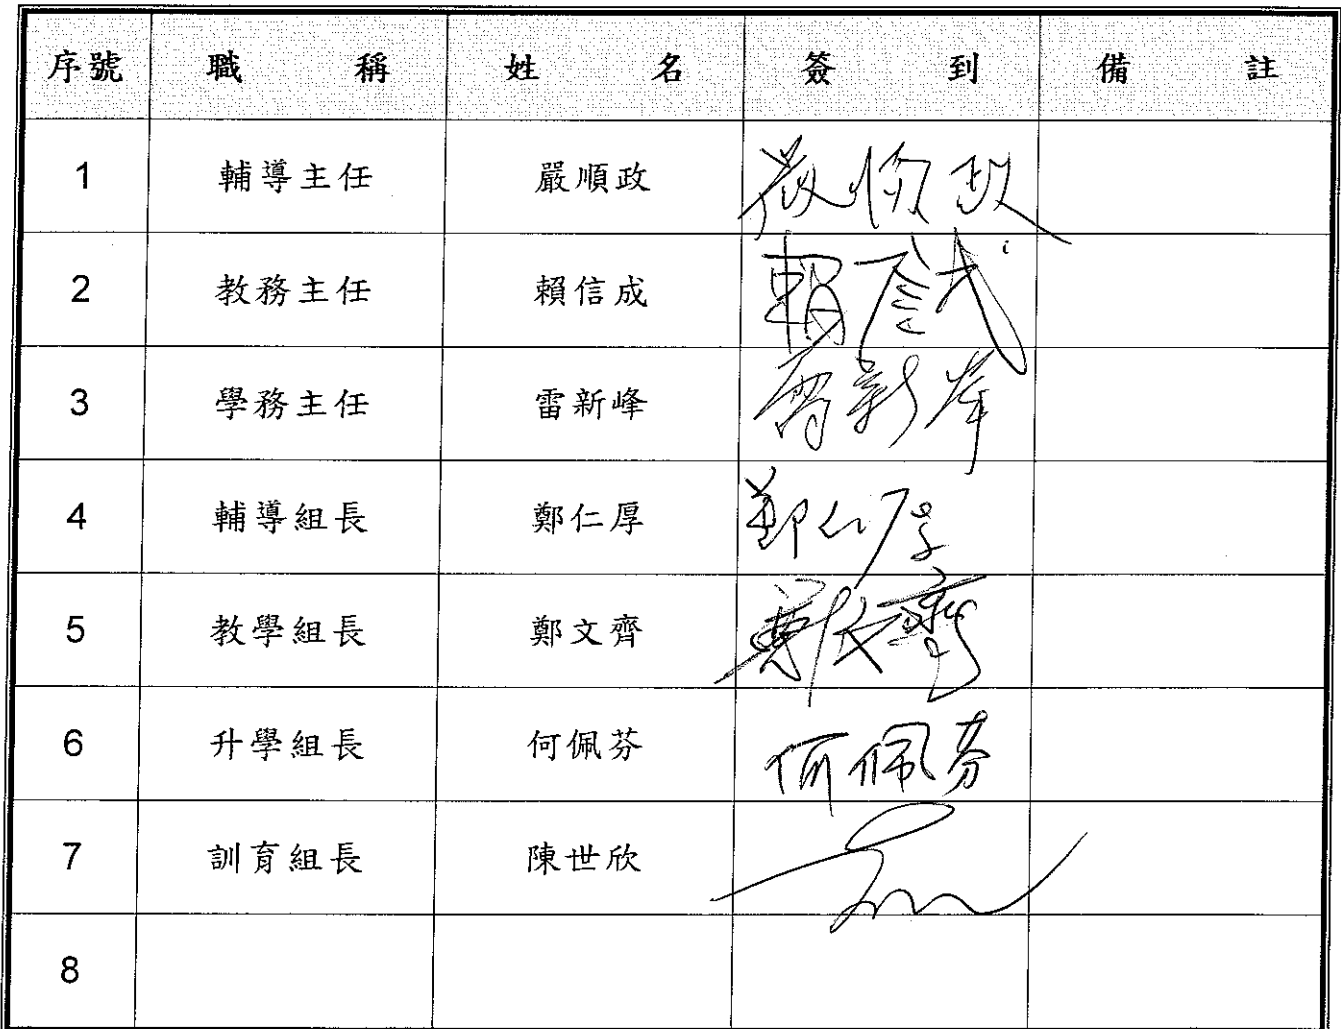 序號 職稱 姓名 簽到 備註
1 輔導主任 嚴順政 嚴順政
2 教務主任 賴信成 賴信成
3 學務主任 雷新峰 雷新峰
4 輔導組長 鄭仁厚 鄭仁厚
5 教學組長 鄭文齊 鄭文齊
6 升學組長 何佩芬 何佩芬
7 訓育組長 陳世欣
8